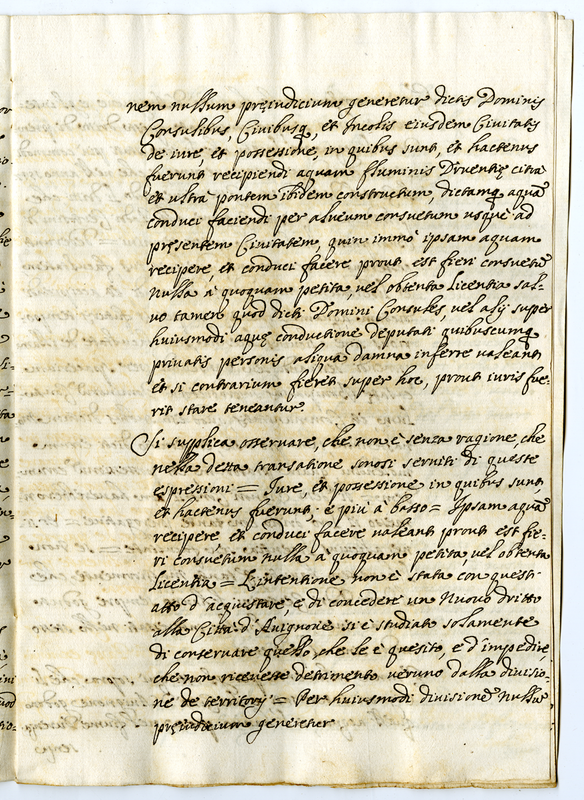 nem nullum pręiudicium generetur dictis Dominis
Consulibus, Civibusq, et Incolis eiusdem Civitatis
de iure, et possessione, in quibus sunt, et hactenus
fuerunt recipiendi aquam fluminis Druentię citra
et ultra pontem ibidem constructum, dictamq aquã
conduci faciendi per alueum consuetum usque ad
pręsentem Civitatem, quin immò ipsam aquam
recipere et conduci facere prout est fieri consuetũ
nulla à quoquam petita, vel obtenta licentia sal-
vo tamen quod dicti Domini Consules, vel alij super
huiusmodi aquę conductione deputati quibuscumq
privatis personis aliqua damna inferre valeant
et si contrarium fieret super hoc, prout iuris fue-
rit stare teneantur.
Si supplica osservare, che non è senza ragione, che
nella detta transatione sonosi serviti di queste
espressioni = Iure, et possessione in quibus sunt,
et hactenus fuerunt; e più a basso = Ipsam aquã
recipere et conduci facere valeant prout est fie-
ri consuetum nulla à quoquam petita, vel obtenta
Licentia = L'intentione non è stata con quest-
atto d'acquistare, e di concedere un nuovo dritto
alla Città d'Avignone si è studiato solamente
di conservare quello, che le è quesito, e d'impedire,
che non ricevesse detrimento veruno dalla divisio-
ne de territorij = Per huiusmodi divisionẽ nullũ
pręiudicium generetur